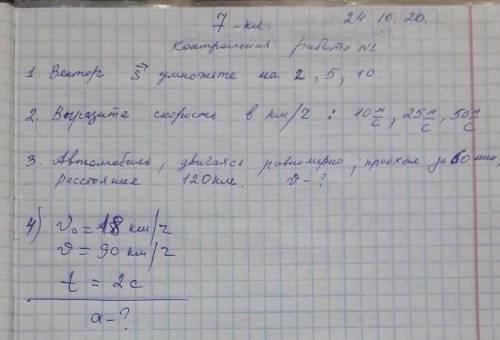 7-кл. 24.10.20.
Контрольная работа №1
1. Вектор s⃗ умножете на 2, 5, 10.
2. Выразите скорость в км/г : 10 м/с, 25 м/с, 50 м/с
3. Автомобиль, двигаясь равномерно, проехал за 60 мин,
расстояние 120 км. v - ?
4) v₀ = 18 км/г
v = 90 км/г
t = 2 с
a - ?